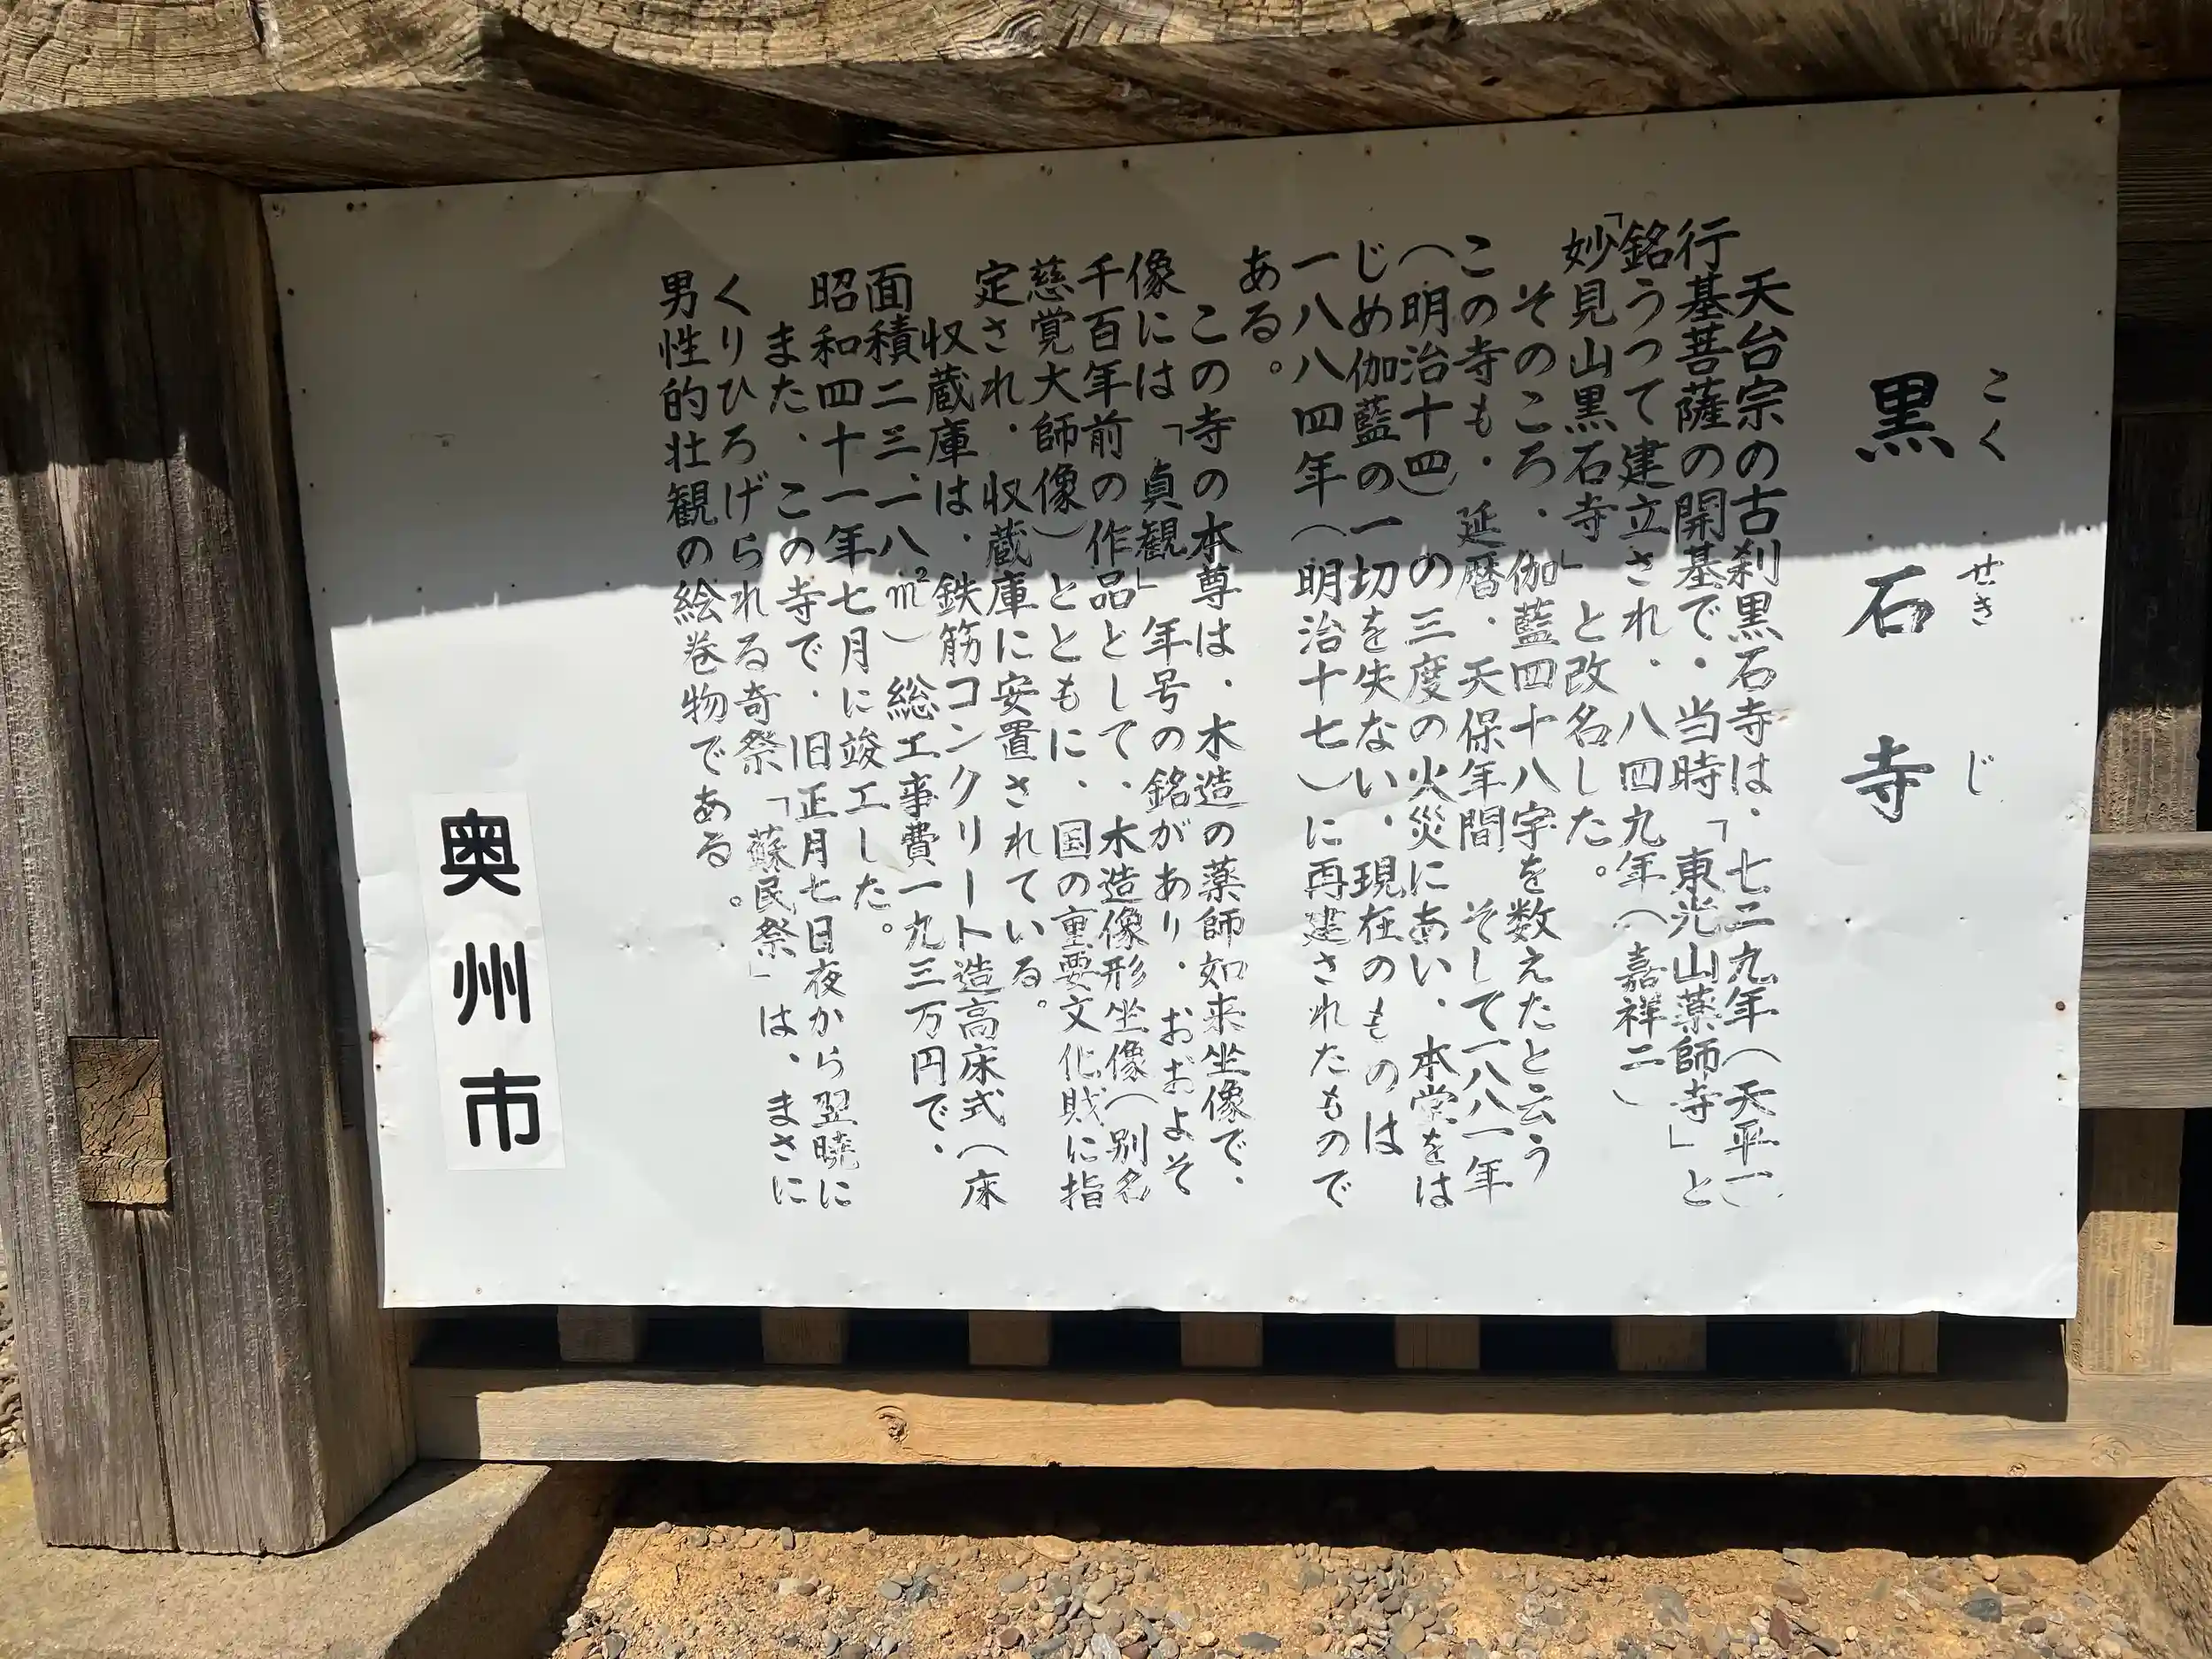 黒石寺
こくせきじ
天台宗の古刹黒石寺は、七二九年(天平一)
行基菩薩の開基で、当時「東光山薬師寺」と
銘うって建立され、八四九年(嘉祥二)
「妙見山黒石寺」と改名した。
そのころ、伽藍四十八宇を数えたと云う
この寺も、延暦、天保年間 そして一八八一年
(明治十四)の三度の火災にあい、本堂をは
じめ伽藍の一切を失ない、現在のものは
一八八四年(明治十七)に再建されたもので
ある。
この寺の本尊は、木造の薬師如来坐像で、
像には「貞観」年号の銘があり、おおよそ
千百年前の作品として、木造像形坐像(別名
慈覚大師像)とともに、国の重要文化財に指
定され、収蔵庫に安置されている。
収蔵庫は、鉄筋コンクリート造高床式(床
面積二三、一八㎡)総工事費一九三万円で、
昭和四十一年七月に竣工した。
また、この寺で、旧正月七日夜から翌暁に
くりひろげられる奇祭「蘇民祭」は、まさに
男性的壮観の絵巻物である。
奥州市